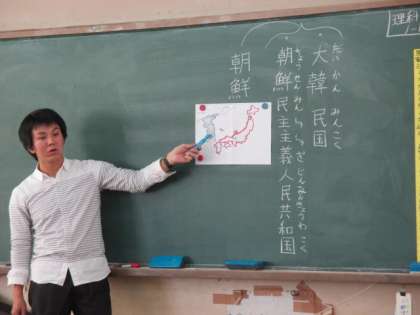 理科
大韓民国
だいかん みんこく
朝鮮民主主義人民共和国
ちょうせんみんしゅしゅぎじんみんきょうわこく
朝鮮